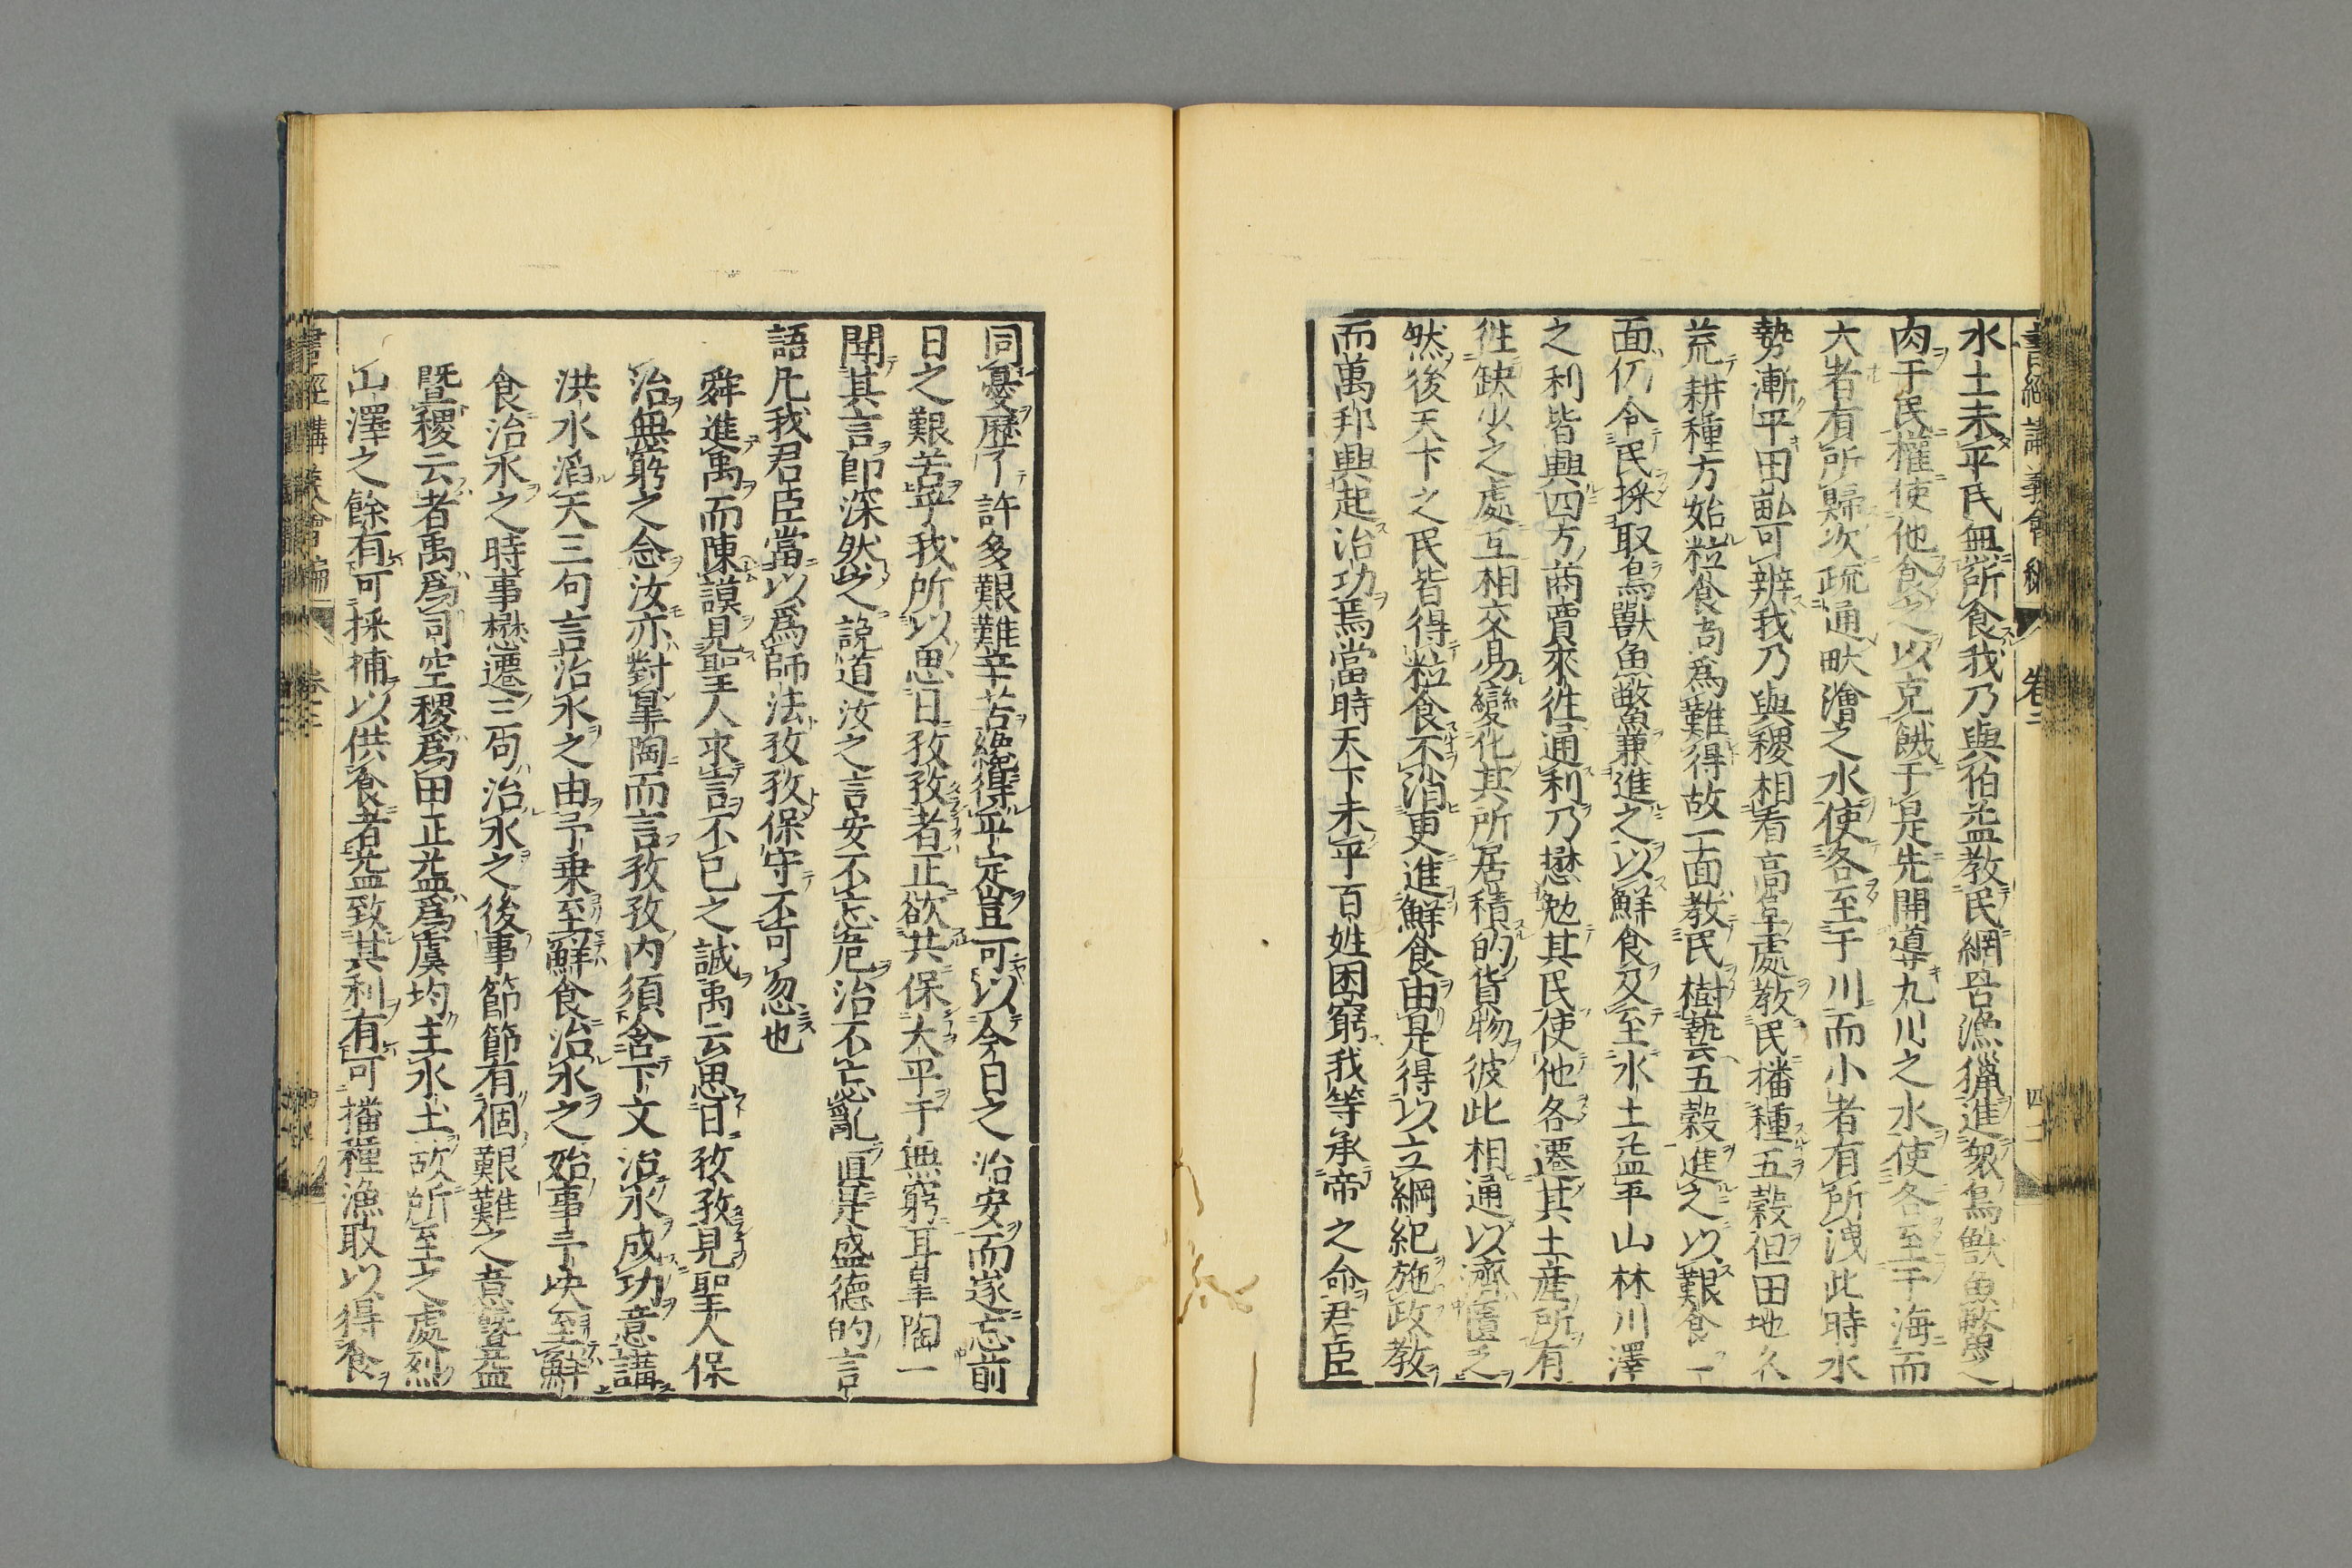 水土未平民無所食我乃與伯益教民網罟漁獵進衆鳥獸魚鱉之
肉于民權使他食之以克饑于是先開導九川之水使各至于海而
大者有所歸次疏通畎澮之水使各至于川而小者有所洩此時水
勢漸平田畝可辨我乃與稷相看高阜處教民播種五穀但田地久
荒耕種方始粒食尚爲難得故一面教民樹藝五穀進之以艱食一
面仍令民採取鳥獸魚鱉兼進之以鮮食及至水土益平山林川澤
之利皆興四方商賈來徃通利乃懋勉其民使他各遷其土產所有
徃缺少之處互相交易變化其所居積的貨物彼此相通以濟匱乏
然後天下之民皆得粒食不消更進鮮食由是得以立綱紀施政教
而萬邦興起治功焉當時天下未平百姓困窮我等承帝之命君臣
同憂歷了許多艱難辛苦纔得平定豈可以今日之治安而遂忘前
日之艱苦乎我所以思日孜孜者正欲共保太平于無窮耳皐陶一
聞其言卽深然之說道汝之言安不忘危治不忘亂眞是盛德的言
語凡我君臣當以爲師法孜孜保守不可忽也
舜進禹而陳謨見聖人求言不已之誠禹云思日孜孜見聖人保
治無窮之念汝亦對皐陶而言孜孜內須含下文治水成功意講
洪水滔天三句言治水之由予乘至鮮食治水之始事予決至鮮
食治水之時事懋遷三句治水之後事節節有個艱難之意曁益
曁稷云者禹爲司空稷爲田正益爲虞均主水土故所至之處烈
山澤之餘有可採捕以供食者益致其利有可播種漁取以得食
書經講義會編
卷二
四十